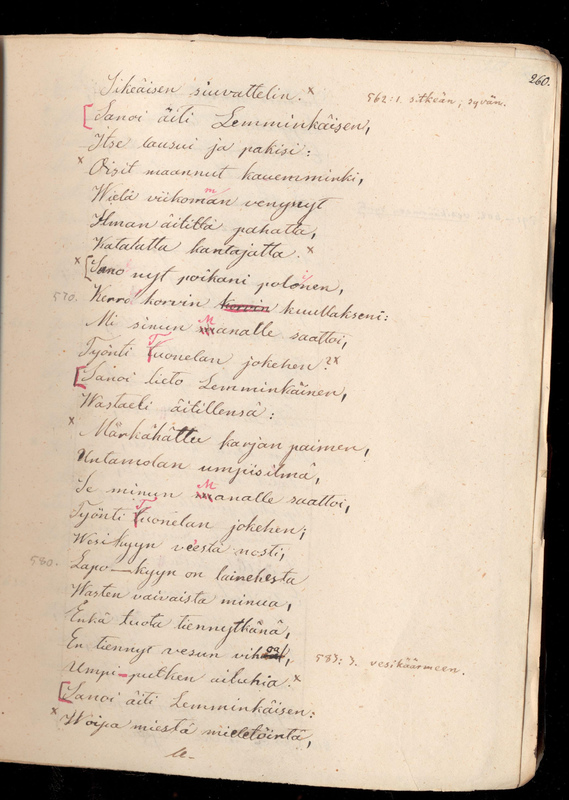 260.
Sikeäisen siuvattelin. x
562: 1. sitkeän, syvän.
[Sanoi äiti Lemminkäisen,
Itse lausui ja pakisi:
x Oisit maannut kauemminki,
Wielä viikomman venynyt
Ilman äitittä pahatta,
Katalatta kantajatta. x
x [Sano nyt poikani polonen,
570. Kerro korvin korvin kuullakseni:
Mi sinun Manalle saattoi,
Työnti Tuonelan jokehen? x
[Sanoi lieto Lemminkäinen,
Wastaeli äitillensä:
x Märkähättu karjan paimen,
Untamolan umpisilmä,
Se minun Manalle saattoi,
Työnti Tuonelan jokehen;
Wesikyyn veestä nosti,
580. Lapo-kyyn on lainehesta
Wasten vaivaista minua,
Enkä tuota tiennytkänä,
En tiennyt vesun vihoa,
583: 3. vesikäärmeen.
Umpi-putken ailuhia. x
[Sanoi äiti Lemminkäisen:
x Woipa miestä mieletöintä,